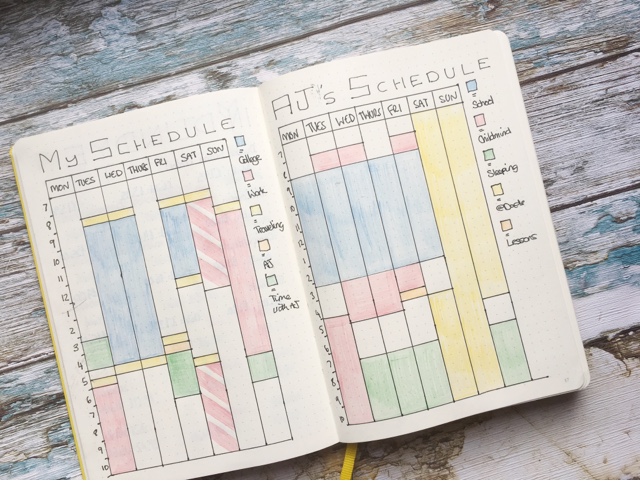 My SCHEDULE
MON TUES WED THURS FRI SAT SUN
7
8
9
10
11
12
1
2
3
4
5
6
7
8
9
10
College
Work
Travelling
AJ
Time
with AJ
AJ's SCHEDULE
MON TUES WED THURS FRI SAT SUN
7
8
9
10
11
12
1
2
3
4
5
6
7
8
9
10
School
Childmind
Sleeping
Lessons